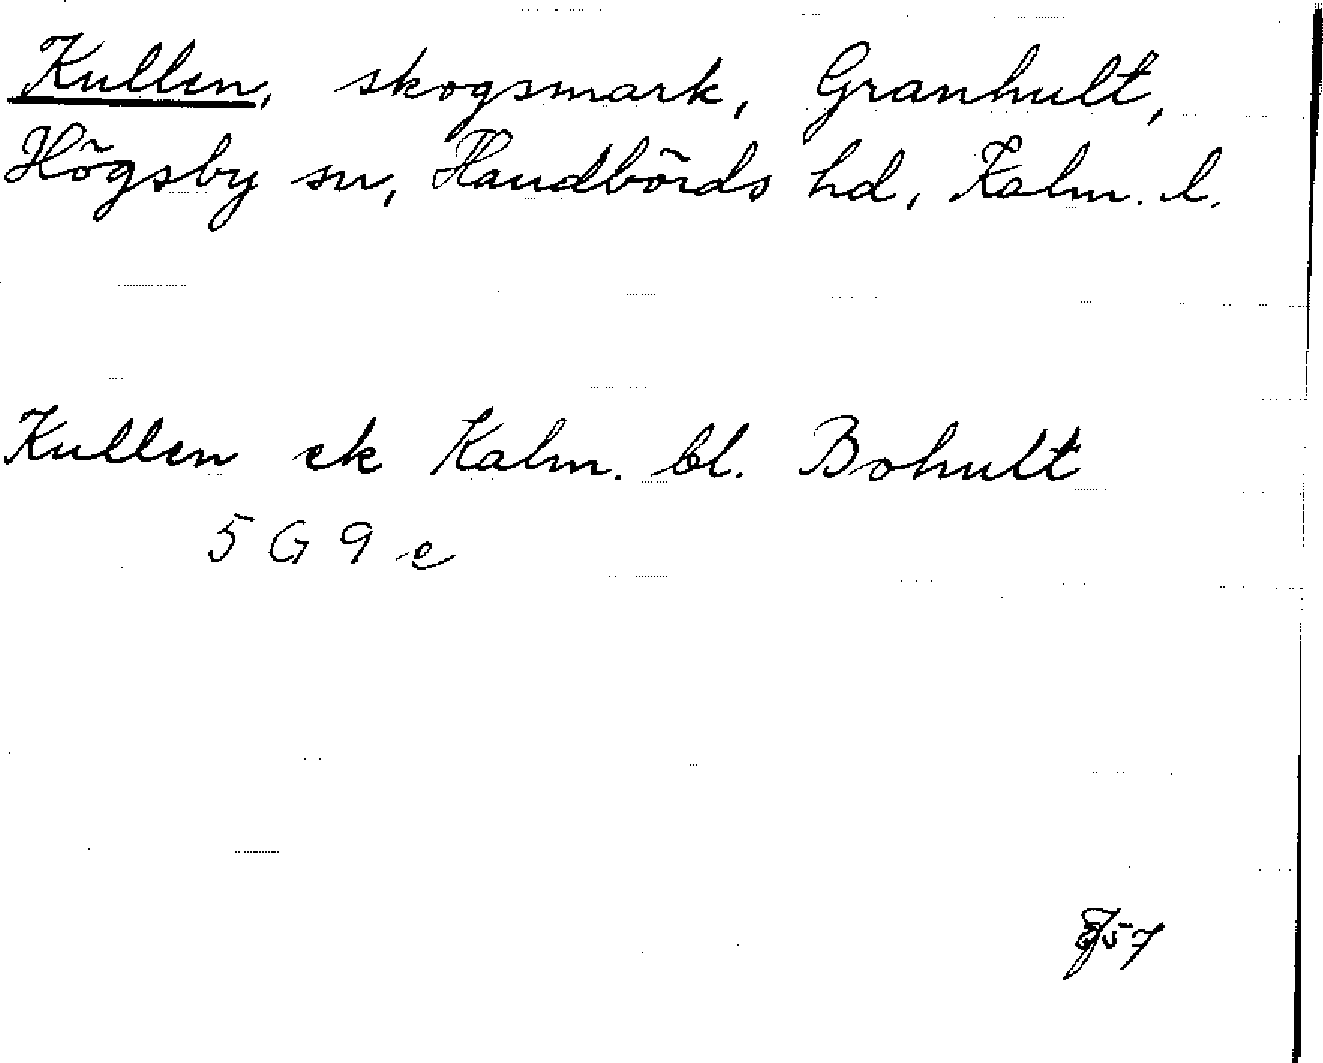 Kullen, skogsmark, Granhult,
Högsby sn, Handbörds hd, Kalm. l.
Kullen ek Kalm. bl. Bohult
5 G 9 e
57